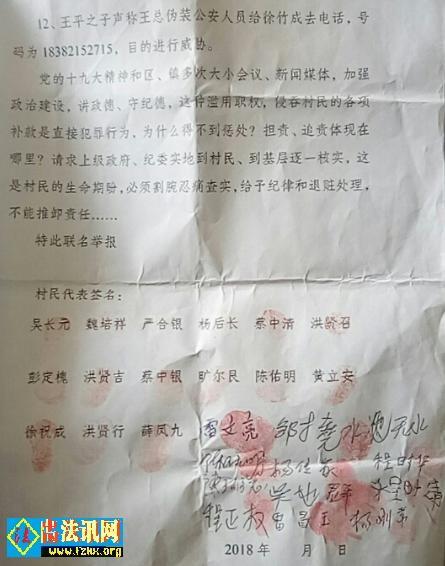 12、王平之子声称王总伪装公安人员给徐竹成去电话，号
码为 18382152715，目的进行威胁。
党的十九大精神和区、镇多次大小会议、新闻媒体，加强
政治建设，讲政德、守纪德，这种滥用职权，侵吞村民的各项
补款是直接犯罪行为，为什么得不到惩处？担责、追责体现在
哪里？请求上级政府、纪委实地到村民、到基层逐一核实，这
是村民的生命期盼，必须割腕忍痛查实，给予纪律和退赃处理，
不能推卸责任……
特此联名举报
村民代表签名：
吴长元 魏培祥 严合银 杨后长 蔡中清 洪贤召
彭定槐 洪贤吉 蔡中银 旷尔民 陈佑明 黄立安
徐祝成 洪贤行 薛凤九
程正权
2018 年 月 日
法 出法讯网
www.fzhx.org